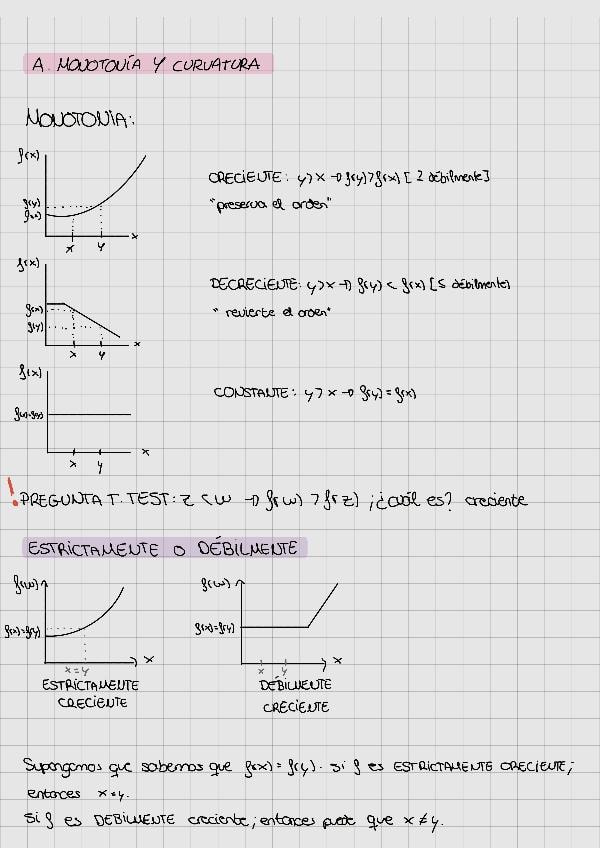 A. MONOTONÍA Y CURVATURA
MONOTONIA:
f(x)
f(y)
f(x)
x
y
x
CRECIENTE: y>x → f(y)>f(x) [≥ débilmente]
"preserva el orden"
f(x)
f(x)
f(y)
x
y
x
DECRECIENTE: y>x → f(y) < f(x) [≤ débilmente]
"revierte el orden"
f(x)
x
y
x
CONSTANTE: y>x → f(y) = f(x)
! PREGUNTA T. TEST: z < w → f(w) > f(z) ; ¿cuál es? creciente
ESTRICTAMENTE O DÉBILMENTE
f(w)
f(x)=f(y)
x=y
x
ESTRICTAMENTE
CRECIENTE
f(w)
f(x)=f(y)
x
y
x
DÉBILMENTE
CRECIENTE
Supongamos que sabemos que f(x) = f(y). Si f es ESTRICTAMENTE CRECIENTE;
entonces x=y.
Si f es DEBILMENTE creciente; entonces puede que x ≠ y.